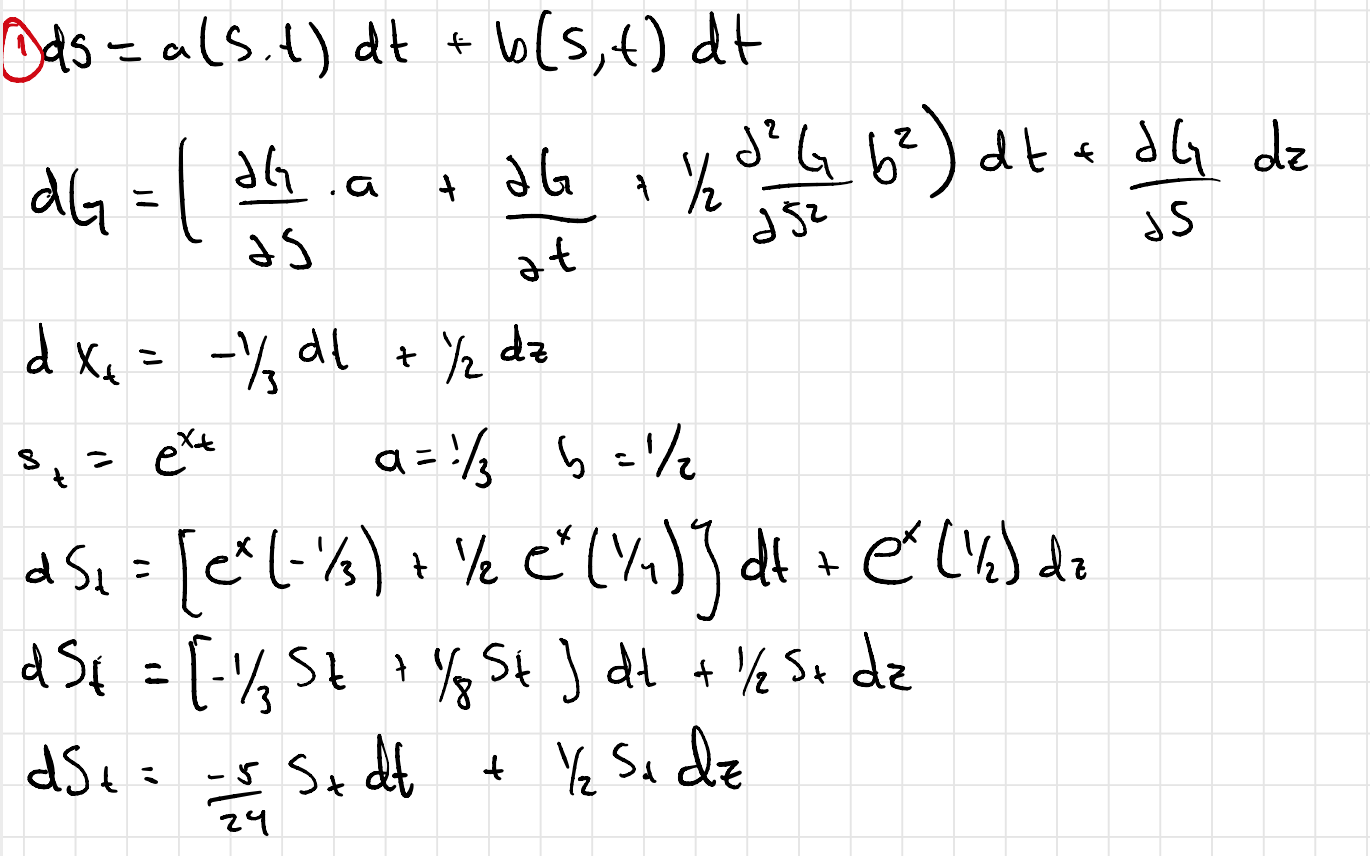 ① ds = a(s.t) dt + b(s,t) dt
dG = ( ∂G/∂S · a + ∂G/∂t + 1/2 ∂²G/∂S² b² ) dt + ∂G/∂S dz
d x_t = -1/3 dt + 1/2 dz
s_t = e^{x_t} a = 1/3 b = 1/2
dS_t = [e^x (-1/3) + 1/2 e^x (1/4)] dt + e^x (1/2) dz
dS_t = [-1/3 S_t + 1/8 S_t] dt + 1/2 S_t dz
dS_t = -5/24 S_t dt + 1/2 S_t dz